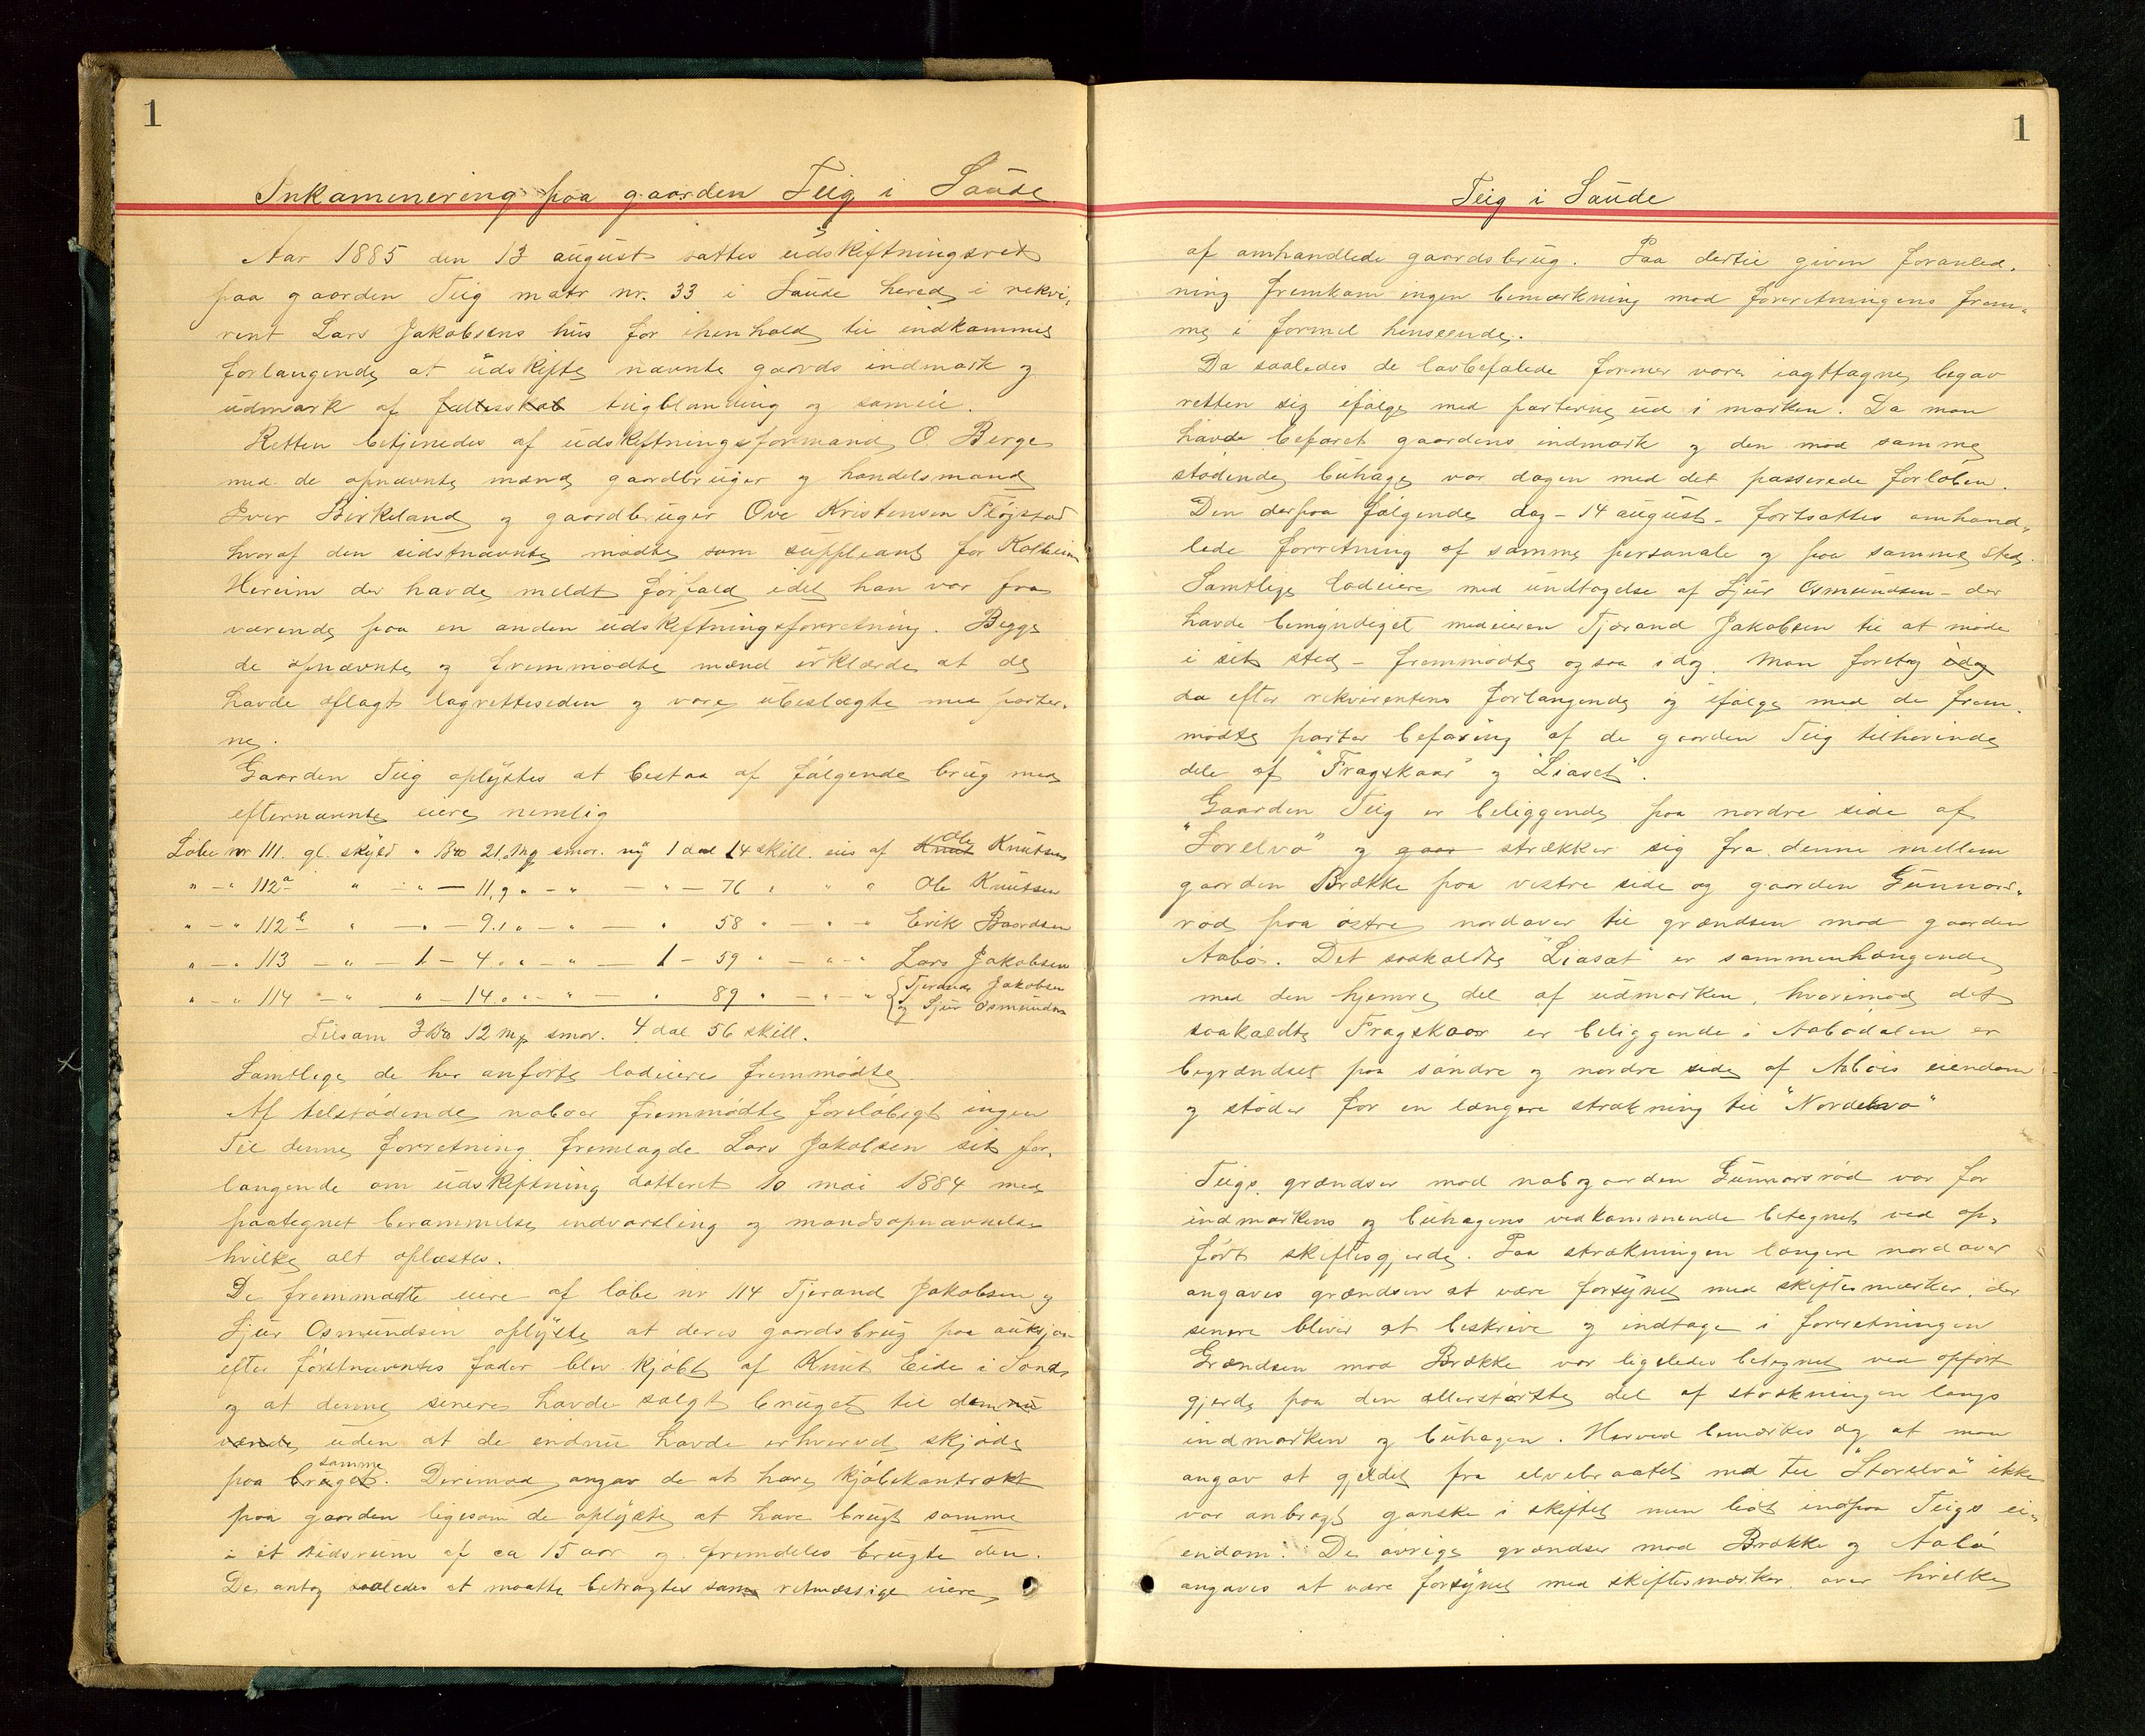 1
Inkaminering paa gaarden Teig i Saude
Aar 1885 den 13 august sattes udskiftningsret
paa gaarden Teig matr nr. 33 i Saude hered i rekvi-
rent Lars Jakobsens hus for i henhold til indkommet
forlangende at udskifte nævnte gaards indmark og
udmark af fællesskab teigblanding og sameie.
Retten betjenedes af udskiftningsformand O Berge
med de opnævnte mænd gaardbruger og handelsmand
Iver Birkeland og gaardbruger Ove Kristensen Fløgstad
hvoraf den sidstnævnte mødte som suppleant for Kolbein
Hereim der havde meldt forfald idet han var fra
værende paa en anden udskiftningsforretning. Begge
de opnævnte og fremmødte mænd erklærde at de
havde aflagt lagretteseden og vare ubeslægte med parter-
ne.
Gaarden Teig oplystes at bestaa af følgende brug med
efternævnte eiere nemlig
Løbe nr 111. gl. skyld " Bro 21 Mg smør. ny 1 dal 14 skill. eies af Knut Ole Knutsen
" - " 112a " - " - 11,9 " - " - " - 76 " " " Ole Knutsen
" - " 112b " - " - 9.1 " - " - " 58 " - " - " Erik Baardsen
" - " 113 - " - 1 - 4. " " - " - 1 - 59 " - " - " Lars Jakobsen
" - " 114 - " " - 14. " " - " - " 89 " - " - " {Tjerand Jakobsen
og Sjur Osmundsen
Tilsam 3 Bro 12 Mg smør. 4 dal 56 skill.
Samtlige de her anførte lodeiere fremmødte.
Af tilstødende naboer fremmødte foreløbigt ingen
Til denne forretning fremlagde Lars Jakobsen sit for-
langende om udskiftning datteret 10 mai 1884 med
paategnet berammelse indvarsling og mandsopnævnelse
hvilke alt oplæstes.
De fremmødte eiere af løbe nr 114 Tjerand Jakobsen og
Sjur Osmundsen oplyste at deres gaardsbrug paa auksjon
efter førstnævntes fader blev kjøbt af Knut Eide i Sand
og at denne senere havde solgt bruget til dem nu
værende uden at de endnu havde erhvervet skjøde
paa bruget samme. Derimod angav de at have kjøbekontrakt
paa gaarden ligesom de oplyste at have brugt samme
i et tidsrum af ca 15 aar og fremdeles brugte den.
De antog saaledes at maatte betragtes som retmæssige eiere
1
Teig i Saude
af omhandlede gaardsbrug. Paa dertil given foranled-
ning fremkom ingen bemærkning mod forretningens frem-
me i formel henseende.
Da saaledes de lovbefalede former vare iagttagne begav
retten sig ifølge med parterne ud i marken. Da man
havde befaret gaardens indmark og den mod samme
stødende buhage var dagen med det passerede forløben.
Den derpaa følgende dag - 14 august - fortsattes omhand-
lede forretning af samme personale og paa samme sted.
Samtlige lodeiere med undtagelse af Sjur Osmundsen - der
havde bemyndiget medeieren Tjerand Jakobsen til at møde
i sit sted - fremmødte ogsaa idag. Man foretog idag
da efter rekvirentens forlangende og ifølge med de frem-
mødte parter befaring af de gaarden Teig tilhørende
dele af "Fragskaar" og "Liaset".
Gaarden Teig er beliggende paa nordre side af
"Storelva" og gaar strækker sig fra denne mellem
gaarden Brække paa vestre side og gaarden Gunnars-
rød paa østre nordover til grændsen mod gaarden
Aabø. Det saakaldte "Liaset" er sammenhængende
med den hjemre del af udmarken, hvorimod det
saakaldte Fragskaar er beliggende i Aabødalen er
begrændset paa søndre og nordre side af Aabøs eiendom
og støder for en længere strækning til "Nordelva"
Teigs grændser mod nabogaarden Gunnarsrød var for
indmarkens og buhagens vedkommende betegnet ved op-
ført skiftesgjerde. Paa strækningen længere nordover
angaves grændsen at være forsynet med skiftesmærker, der
senere bliver at beskrive og indtage i forretningen
Grændsen mod Brække var ligeledes betegnet ved opført
gjerde paa den allerstørste del af strækningen langs
indmarken og buhagen. Herved bemærkes dog at man
angav at gjerdet fra elvebraatet ned til "Storelva" ikke
var anbragt ganske i skiftet men lidt indpaa Teigs ei-
endom. De øvrige grændser mod Brække og Aabø
angaves at være forsynet med skiftesmærker over hvilke